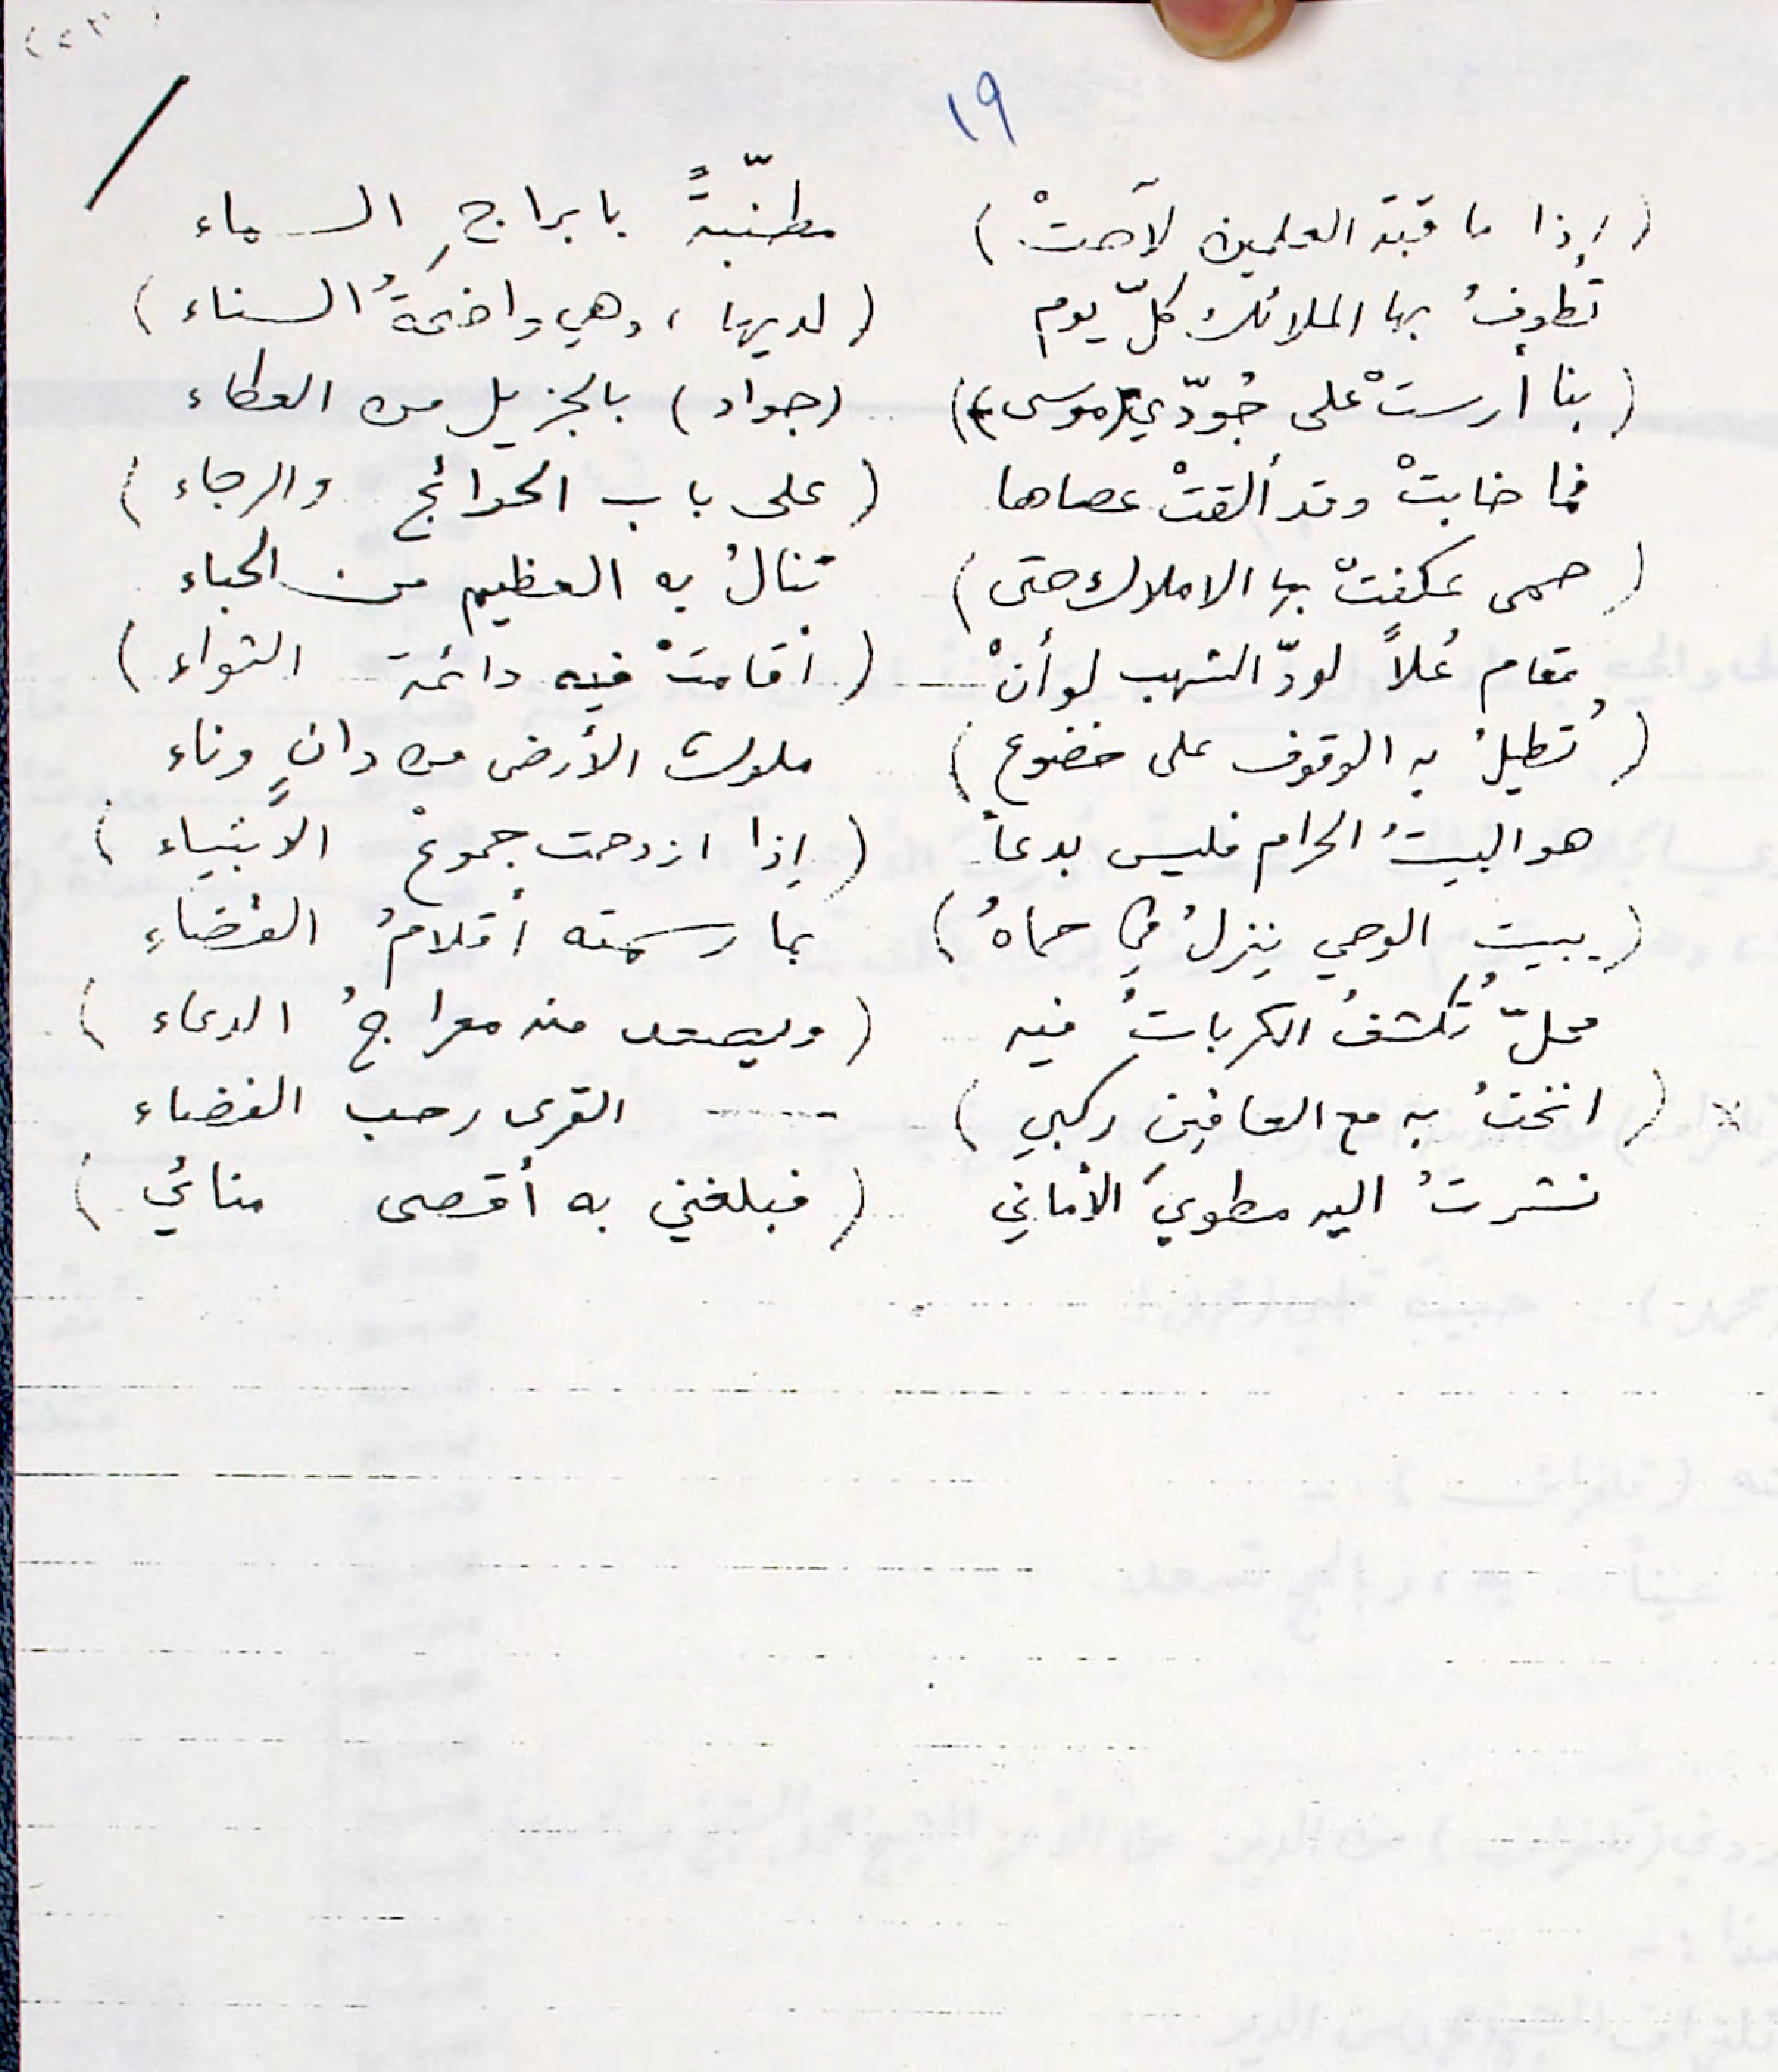 ١٩
(إذا ما قبة العلمين لآحتْ) مطنّبةً بابراجِ السماء
تُطوفُ بها الملائك كلّ يوم (لديها، وهي واضحةُ السناء)
(بنا أرستْ على جُودّي (موسى)) (جواد) بالجزيل من العطاء
فما خابتْ وقد ألقتْ عصاها (على باب الحوائج والرجاء)
(حمى عكفتْ بها الاملاك حتى) تنالُ به العظيم من الحباء
مقام عُلاً لودّ الشهب لو أنْ (أقامتْ فيه دائمة الثواء)
(تُطيلُ به الوقوف على خضوع) ملوك الأرض من دانٍ وناء
هو البيتُ الحرام فليس بدعاً (إذا ازدحمت جموعْ الأنبياء)
(ببيتِ الوحي ينزلُ في حماهُ) بما رسمته أقلامُ القضاءِ
محلّ تُكشفُ الكرباتُ فيه (ويصعد منه معراجُ الدعاء)
× (انختُ به مع العافين ركبي) ----- القرى رحب الفضاء
نشرتُ اليه مطويَ الأماني (فبلغني به أقصى منائي)